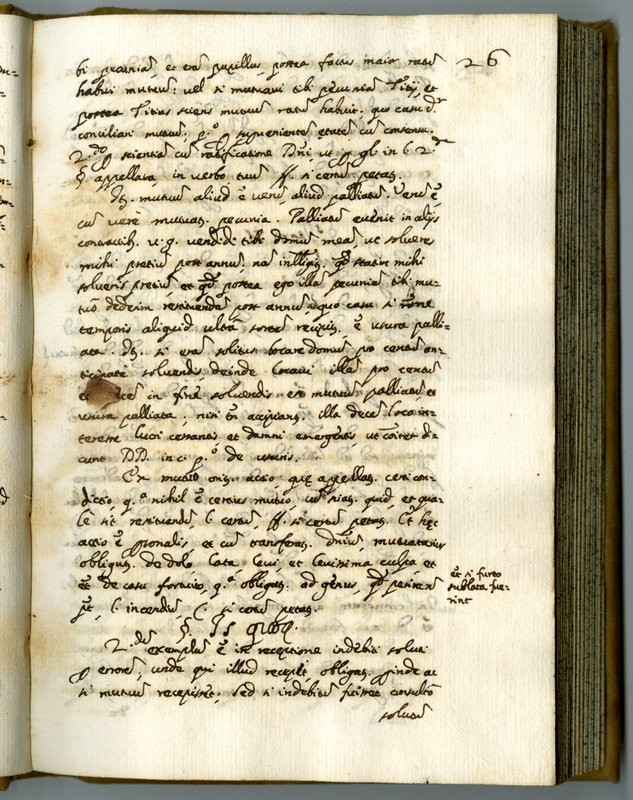 26
bi pecunia, et eras pupillus, postea factus maior ratu
habui mutuu: vel si mutuavi tibi pecunia Titij, et
postea Titius sciens mutuu ratu habuit. quo casu dr
conciliari mutuu; p.o superveniente etate cu consensu.
2.do scientia cu ratificatione Dni ut in gl in 6 2.
§ appellata, in verbo tuu ff. si certu petat.
Itē. mutuu aliud ē veru, aliud palliatu. Veru ē
cu vere mutuat. pecunia. Palliatu evenit in alijs
contractib. v. g. vendidi tibi domu mea, ut solveres
mihi pretiu post annu, na intlligit. qd statim mihi
solveris pretiu et qd postea ego illa pecunia tibi mu-
tuo dederim restituenda post annu, quo casu si rōne
temporis aliquid ultra sorte recipis. ē usura pallia-
ata. Itē. si eras solitus locare domu pro centu an-
ticipate solvendis, deinde locavi illa pro centu
et dece in fine solvendis est mutuu palliatu et
usura palliata, nisi tn accipiant. illa dece loco in-
teresse lucri cessantis et damni emergentis ut coiter di-
cunt DD. in c. p.o de usuris.
Ex mutuo orit. actio que appellat. certi con-
dictio, q.a nihil ē certius mutuo, cu sciat. quid, et qua-
le sit restituendu, l. certu, ff. si certu petat. Et hec
actio ē psonalis, et cu transferat. dniu, mutuatarius
obligat. de dolo, lata levi, et levissima culpa et
ēt de casu fortuito, q.a obligat. ad genus, qd perire n
pt, l. incendiu, C. si certu petat.
ēt si furto
sublata fue-
rint
§. Is quoq.
2.du exemplu ē in receptione indebiti soluti
p errore, unde qui illud recepit, obligat. pinde ac
si mutuu recepisset, sed si indebitu fuisset consulto
solutu